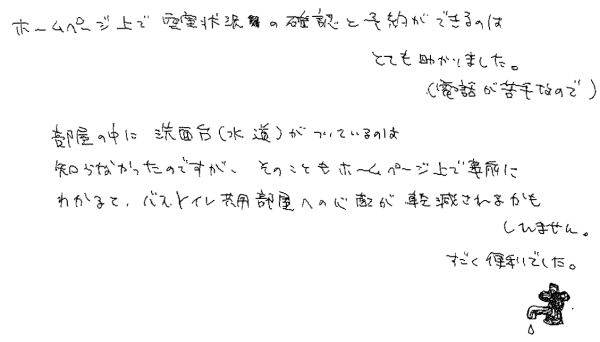 ホームページ上で空室状況の確認と予約ができるのは
とても助かりました。
(電話が苦手なので)
部屋の中に洗面台(水道)がついているのは
知らなかったのですが、そのこともホームページ上で事前に
わかると、バストイレ共用部屋への心配が軽減されるかも
しれません。
すごく便利でした。